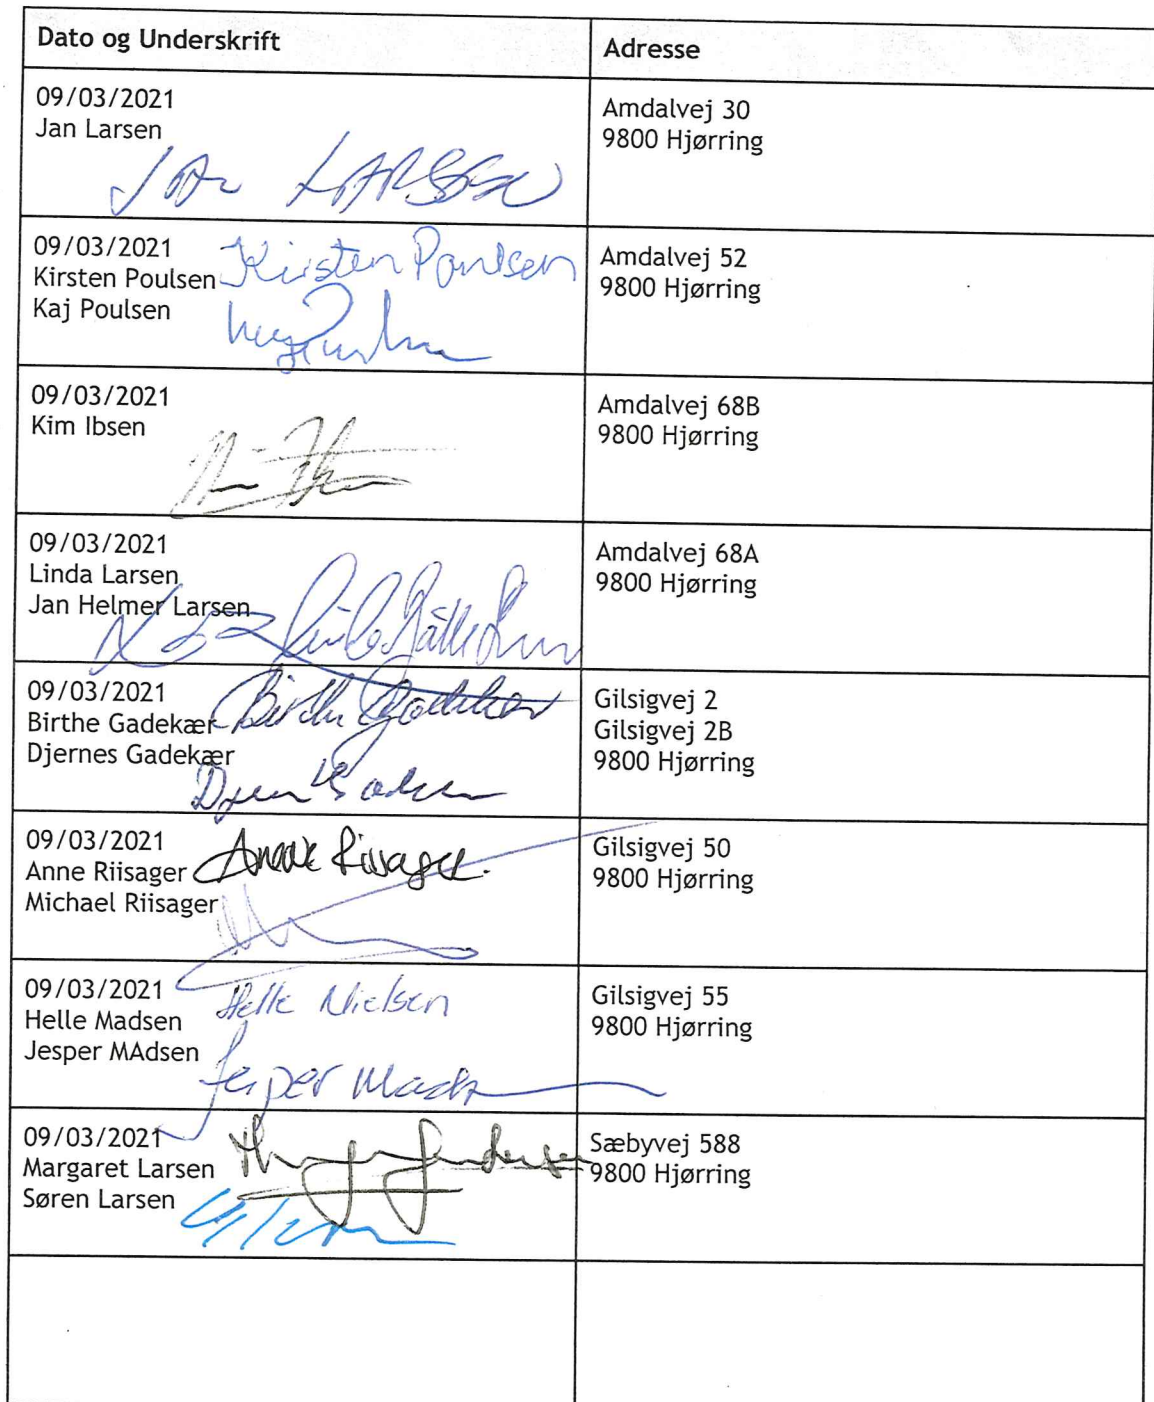 Dato og Underskrift
Adresse
09/03/2021
Jan Larsen
JAN LARSEN
Amdalvej 30
9800 Hjørring
09/03/2021
Kirsten Poulsen
Kaj Poulsen
Kirsten Poulsen
Amdalvej 52
9800 Hjørring
09/03/2021
Kim Ibsen
Amdalvej 68B
9800 Hjørring
09/03/2021
Linda Larsen
Jan Helmer Larsen
Amdalvej 68A
9800 Hjørring
09/03/2021
Birthe Gadekær
Djernes Gadekær
Birthe Gadekær
Gilsigvej 2
Gilsigvej 2B
9800 Hjørring
09/03/2021
Anne Riisager
Michael Riisager
Anne Riisager.
Gilsigvej 50
9800 Hjørring
09/03/2021
Helle Madsen
Jesper MAdsen
Helle Nielsen
Jesper Mads
Gilsigvej 55
9800 Hjørring
09/03/2021
Margaret Larsen
Søren Larsen
Sæbyvej 588
9800 Hjørring